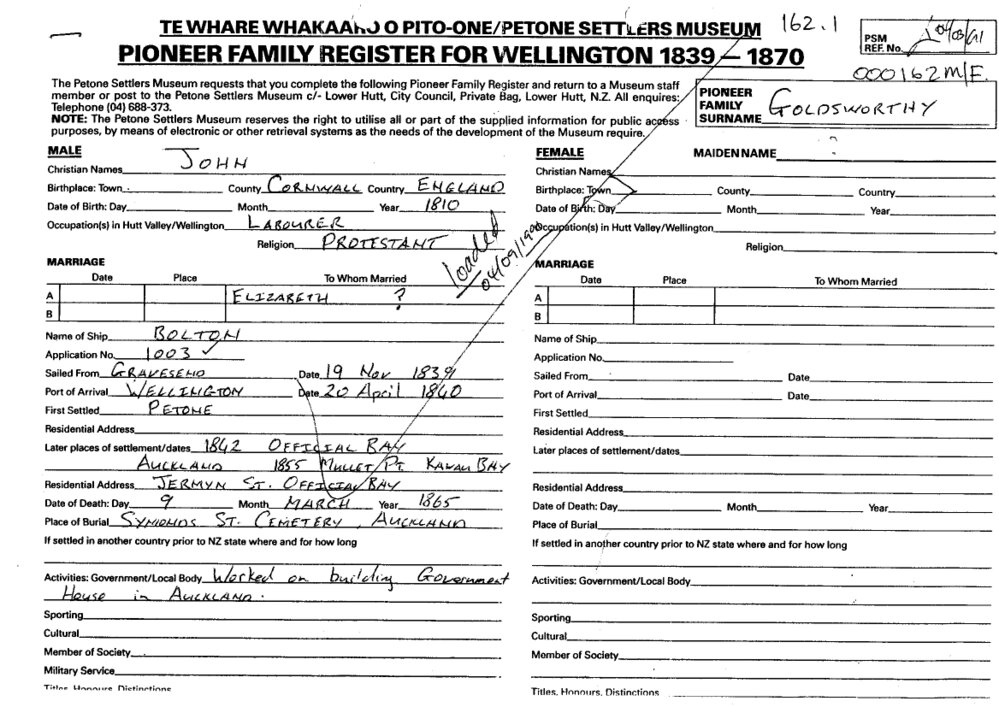 TE WHARE WHAKAAKO O PITO-ONE/PETONE SETTLERS MUSEUM 162.1
PIONEER FAMILY REGISTER FOR WELLINGTON 1839 — 1870
PSM
REF. No.
000162M/F.
The Petone Settlers Museum requests that you complete the following Pioneer Family Register and return to a Museum staff
member or post to the Petone Settlers Museum c/- Lower Hutt, City Council, Private Bag, Lower Hutt, N.Z. All enquires:
Telephone (04) 688-373.
NOTE: The Petone Settlers Museum reserves the right to utilise all or part of the supplied information for public access
purposes, by means of electronic or other retrieval systems as the needs of the development of the Museum require.
PIONEER
FAMILY
SURNAME GOLDSWORTHY
MALE
Christian Names JOHN
Birthplace: Town - County CORNWALL Country ENGLAND
Date of Birth: Day Month Year 1810
Occupation(s) in Hutt Valley/Wellington LABOURER
Religion PROTESTANT
loaded
MARRIAGE
Date Place To Whom Married
A ELIZABETH ?
B
Name of Ship BOLTON
Application No. 1003 ✓
Sailed From GRAVESEND Date 19 Nov 1839
Port of Arrival WELLINGTON Date 20 April 1840
First Settled PETONE
Residential Address
Later places of settlement/dates 1842 OFFICIAL BAY
AUCKLAND 1855 MULLET PT. KAWAU BAY
Residential Address JERMYN ST. OFFICIAL BAY
Date of Death: Day 9 Month MARCH Year 1865
Place of Burial SYMONDS ST. CEMETERY, AUCKLAND
If settled in another country prior to NZ state where and for how long
Activities: Government/Local Body Worked on building Government
House in AUCKLAND.
Sporting
Cultural
Member of Society
Military Service
Titles, Honours, Distinctions
FEMALE MAIDEN NAME
Christian Names
Birthplace: Town County Country
Date of Birth: Day Month Year
Occupation(s) in Hutt Valley/Wellington
Religion
MARRIAGE
Date Place To Whom Married
A
B
Name of Ship
Application No.
Sailed From Date
Port of Arrival Date
First Settled
Residential Address
Later places of settlement/dates
Residential Address
Date of Death: Day Month Year
Place of Burial
If settled in another country prior to NZ state where and for how long
Activities: Government/Local Body
Sporting
Cultural
Member of Society
Titles, Honours, Distinctions